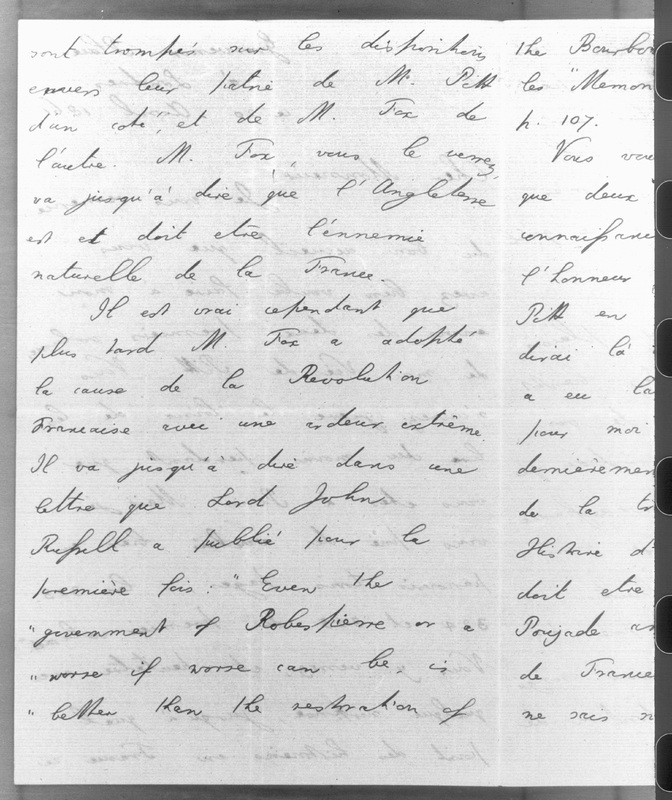 sont trompés sur les dispositions
envers leur patrie de M. Pitt
d'un coté, et de M. Fox de
l'autre. M. Fox, vous le verrez,
va jusqu'à dire que l'Angleterre
est et doit etre l'énnemie
naturelle de la France.
Il est vrai cependant que
plus tard M. Fox a adopté
la cause de la Revolution
Francaise avec une ardeur extrême.
Il va jusqu'a dire dans une
lettre que Lord John
Russell a publié pour la
première fois: "Even the
"government of Robespierre or a
"worse if worse can be, is
"better than the restoration of
the Bourbo
les "Memoi
p. 107.
Vous vou
que deux
connaissanc
l'honneur
Pitt en
dirai là
a eu la
pour moi
dernieremen
de la tr
Histoire d
doit etre
Poujade an
de France
ne sais n